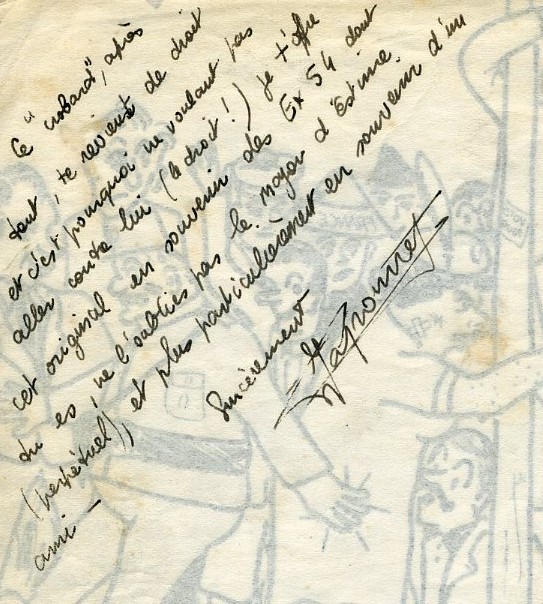 Ce "crobard", après
tout, te revient de droit
et c'est pourquoi ne voulant pas
aller contre lui (le droit !) je t'offre
cet original en souvenir des Ex 54 dont
tu es, ne l'oublies pas le major d'Estime
(perpétuel), et plus particulièrement en souvenir d'un
ami -
Sincèrement